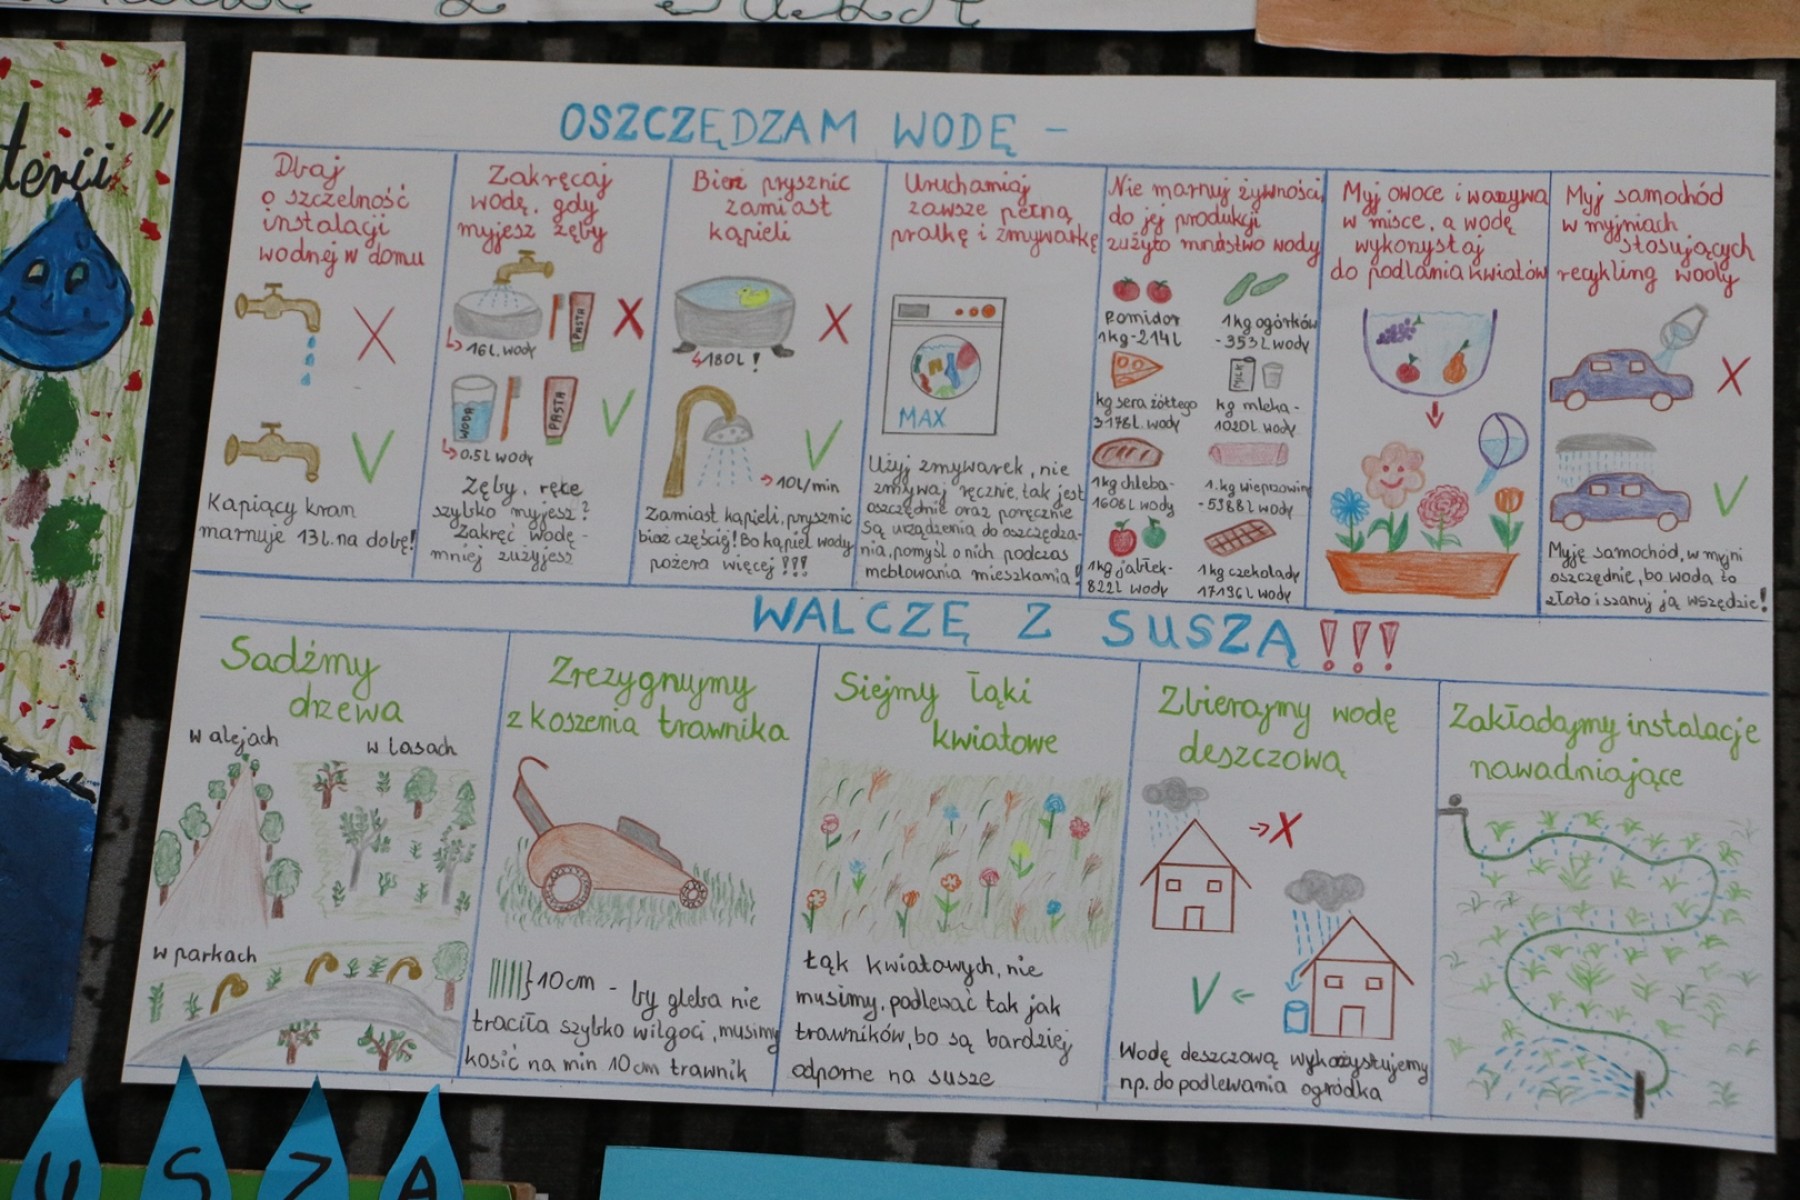 terii"
OSZCZĘDZAM WODĘ -
Dbaj
o szczelność
instalacji
wodnej w domu
Kapiący kran
marnuje 13l. na dobę!
Zakręcaj
wodę, gdy
myjesz zęby
PASTA
16l. wody
WODA
PASTA
0.5l wody
Zęby, ręke
szybko myjesz?
Zakręć wodę -
mniej zużyjesz
Bierz prysznic
zamiast
kąpieli
180l!
10l/min
Zamiast kąpieli, prysznic
bierz częściej! Bo kąpiel wody
pożera więcej!!!
Uruchamiaj
zawsze pełną
pralkę i zmywarkę
MAX
Użyj zmywarek, nie
zmywaj ręcznie, tak jest
oszczędnie oraz poręcznie
są urządzenia do oszczędza-
nia, pomyśl o nich podczas
meblowania mieszkania!
Nie marnuj żywności,
do jej produkcji
zużyto mnóstwo wody
Pomidor
1kg-214l
1kg ogórków
-353l wody
MILK
kg sera żółtego
3178l. wody
kg mleka-
1020l wody
1kg chleba-
1608l wody
1.kg wieprzowiny
-5988l wody
1kg jabłek-
822l wody
1kg czekolady
17196l wody
Myj owoce i warzywa
w misce, a wodę
wykorzystaj
do podlania kwiatów
Myj samochód
w myjniach
stosujących
recykling wody
Myję samochód, w myjni
oszczędnie, bo woda to
złoto i szanuj ją wszędzie!
WALCZĘ Z SUSZĄ!!!
Sadźmy
drzewa
w alejach
w lasach
w parkach
Zrezygnujmy
z koszenia trawnika
}10cm - by gleba nie
traciła szybko wilgoci, musimy
kosić na min 10cm trawnik
Siejmy łąki
kwiatowe
Łąk kwiatowych, nie
musimy, podlewać tak jak
trawników, bo są bardziej
odporne na susze
Zbierajmy wodę
deszczową
Wodę deszczową wykorzystujemy
np. do podlewania ogródka
Zakładajmy instalacje
nawadniające
U S Z A